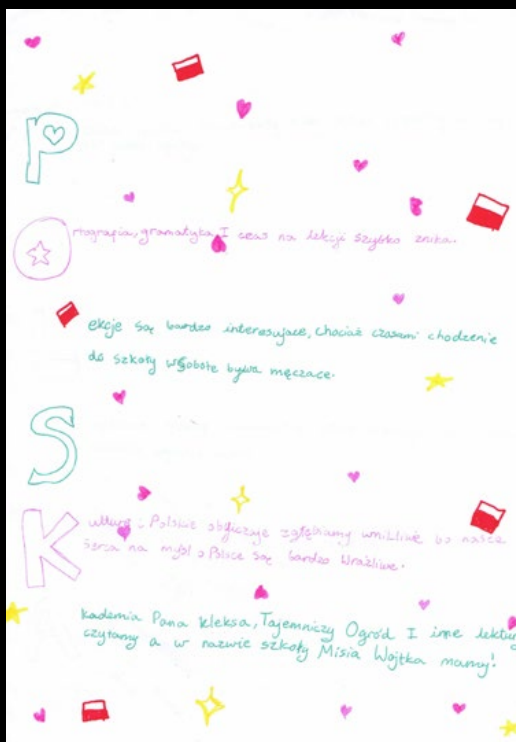 P
Ortografia, gramatyka I czas na lekcji szybko znika.
ekcje są bardzo interesujące, chociaż czasami chodzenie
do szkoły w Sobote bywa męczace.
S
Kulturę i Polskie obyczaje zgłębiamy wnikliwie bo nasze
Serca na myśl o Polsce są bardzo Wrażliwe.
kademia Pana kleksa, Tajemniczy Ogród I inne lektury
czytamy a w nazwie szkoły Misia Wojtka mamy!